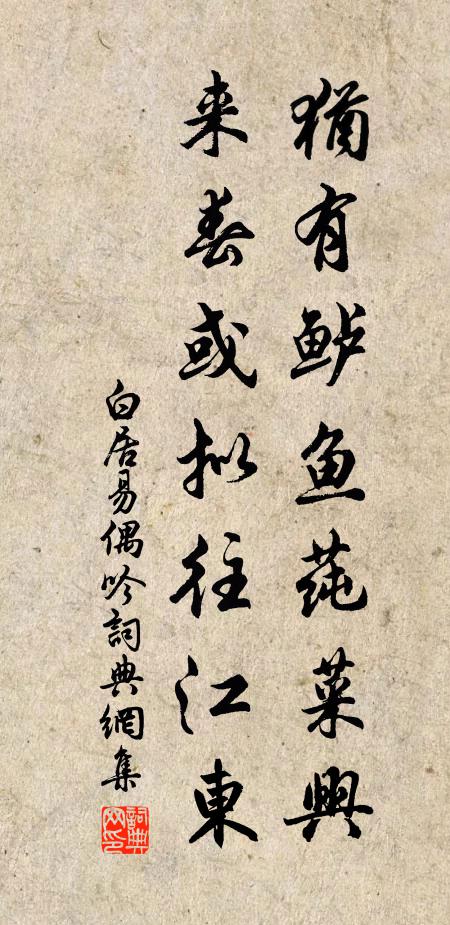 猶有鲈鱼莼菜興
来春或拟往江東
白居易偶吟詞典網集
詞典
网印